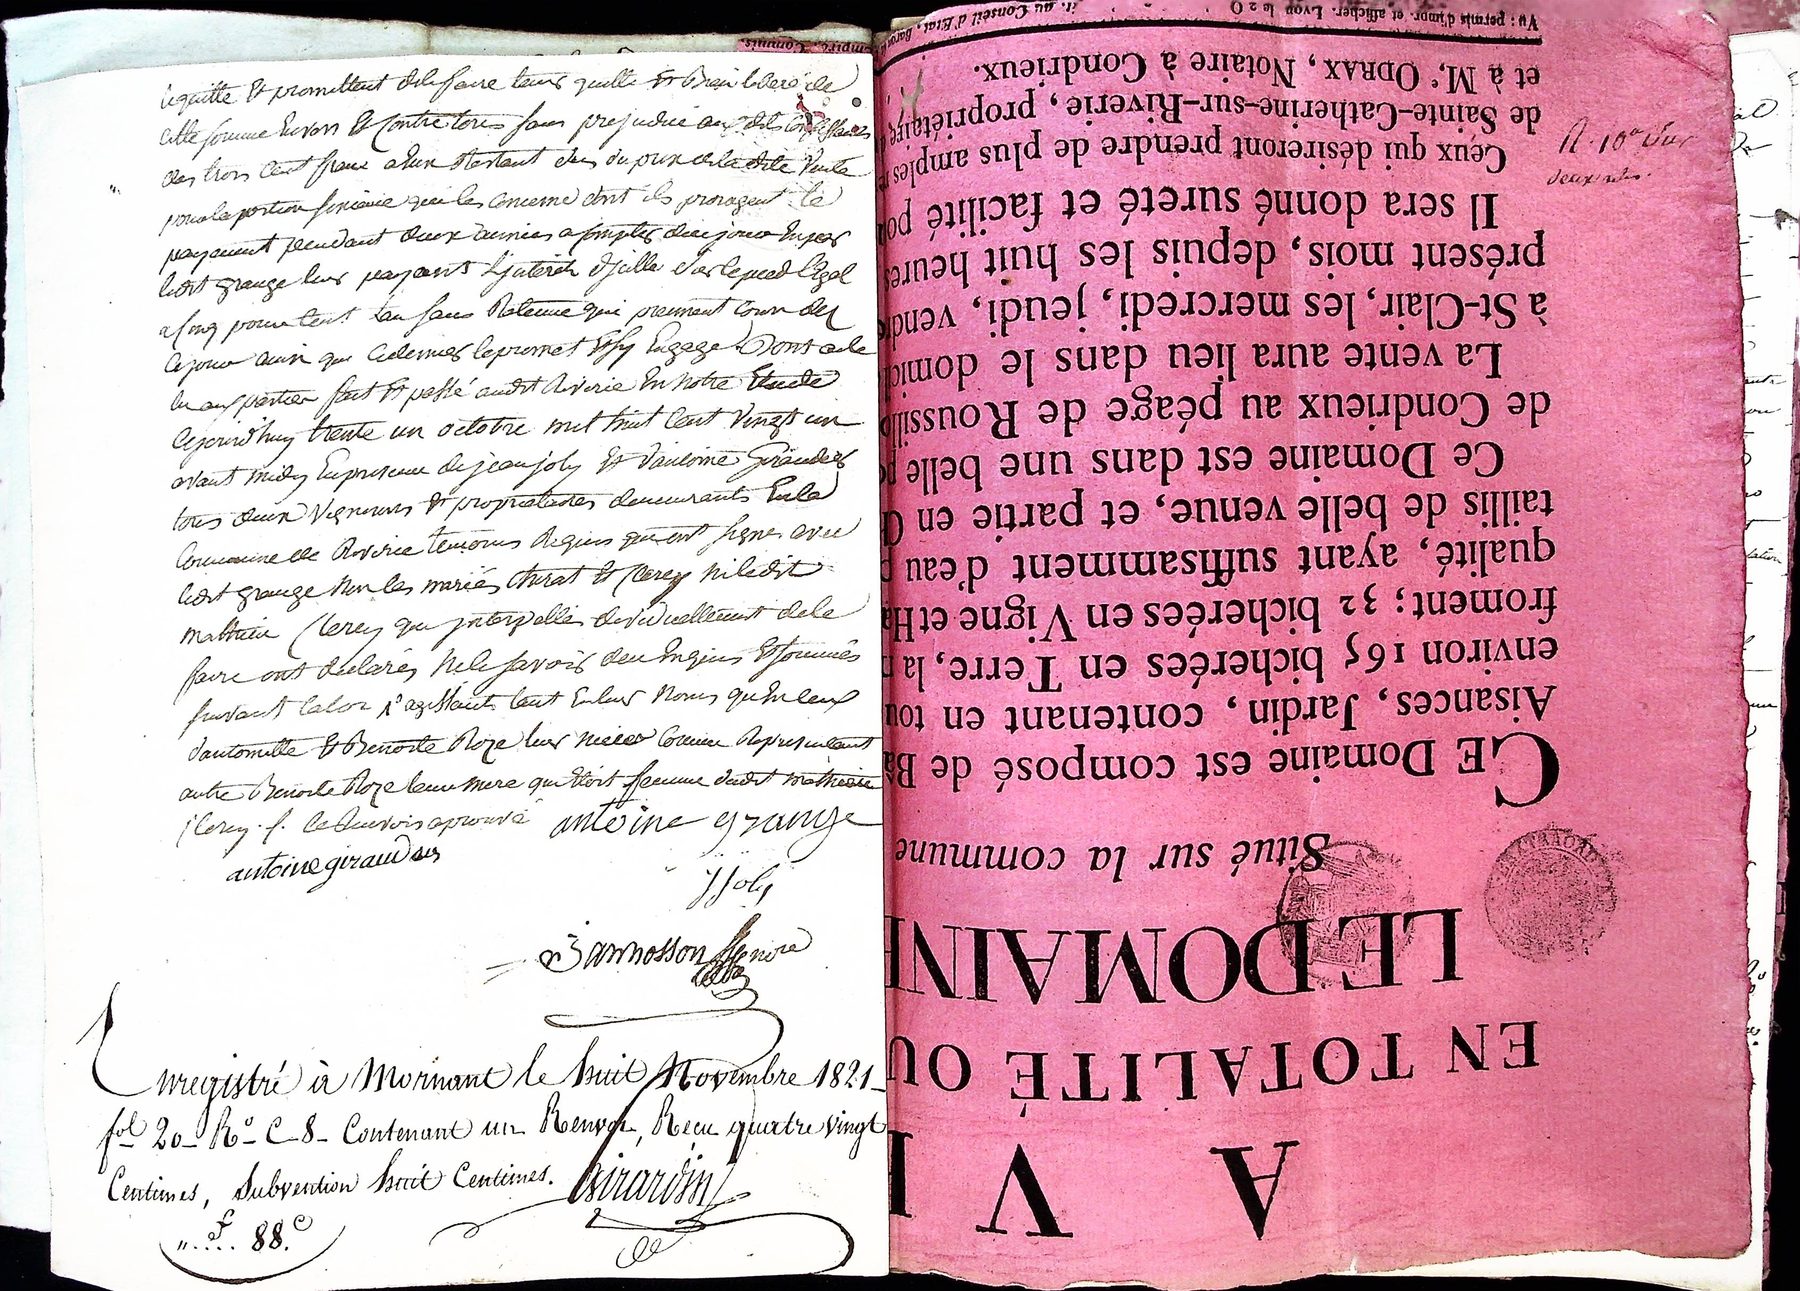 lequitte Et promettent de le faire tenir quitte Et Bien liberé de
cette somme Envers Et Contre tous sans prejudice aux dits
des trois Cent franc a Eux Restant dus du prix de la dite Vente
pour la portion qui les concerne dont ils prorogent le
payement pendant deux années a compter de ce jour En par
ledit grange leur payant L'interêt d'Icelle sur le pied Légal
a Cinq pour Cent l'an sans Retenue qui prennent Cours des
Cejour ainsi que ce dernier le promet Et s'y Engage Dont acte
lu aux parties fait Et passé audit Riverie En notre Etude
Cejourd'huy trente un octobre mil huit Cent Vingt un
avant midy En presence de jean joly Et d'antoine Giraudier
tous deux Vignerons Et proprietaires demeurants En la
Commune de Riverie temoins Requis qui ont signé avec
ledit grange Non les mariés Clerey Ni ledit
mathieu Clerey qui Interpellés de le
faire ont declarés Ne le savoir de ce Enquis Et sommés
suivant la loi agissants tant En leur Noms qu'En Ceux
d'antoinette Et Benoite Roze leur nieces Comme Representant
autre Benoite Roze leur mere qui Etoit femme dudit mathieu
Clerey. Le Renvois aprouvé antoine grange
antoine giraudier
J Joly
Bannosson Notaire
Enregistré à Mornant le huit Novembre 1821
fol 20 Ro C 8 Contenant un Renvoi, Recu quatre vingt
Centimes, Subvention huit Centimes. Girardin
".... f 88.c
A
V
EN TOTALITÉ OU
LE DOMAINE
Situé sur la commune
CE Domaine est composé de Bâ
Aisances, Jardin, contenant en tou
environ 165 bicherées en Terre, la
froment; 32 bicherées en Vigne et Ha
qualité, ayant suffisamment d'eau
taillis de belle venue, et partie en
Ce Domaine est dans une belle po
de Condrieux au péage de Roussillo
La vente aura lieu dans le domici
à St-Clair, les mercredi, jeudi, vendre
présent mois, depuis les huit heures
Il sera donné sureté et facilité pou
Ceux qui désireront prendre de plus amples re
de Sainte-Catherine-sur-Riverie, propriétaire
et à M.e ODRAX, Notaire à Condrieux.
Vu : permis d'impr. et afficher. Lyon le 2 O